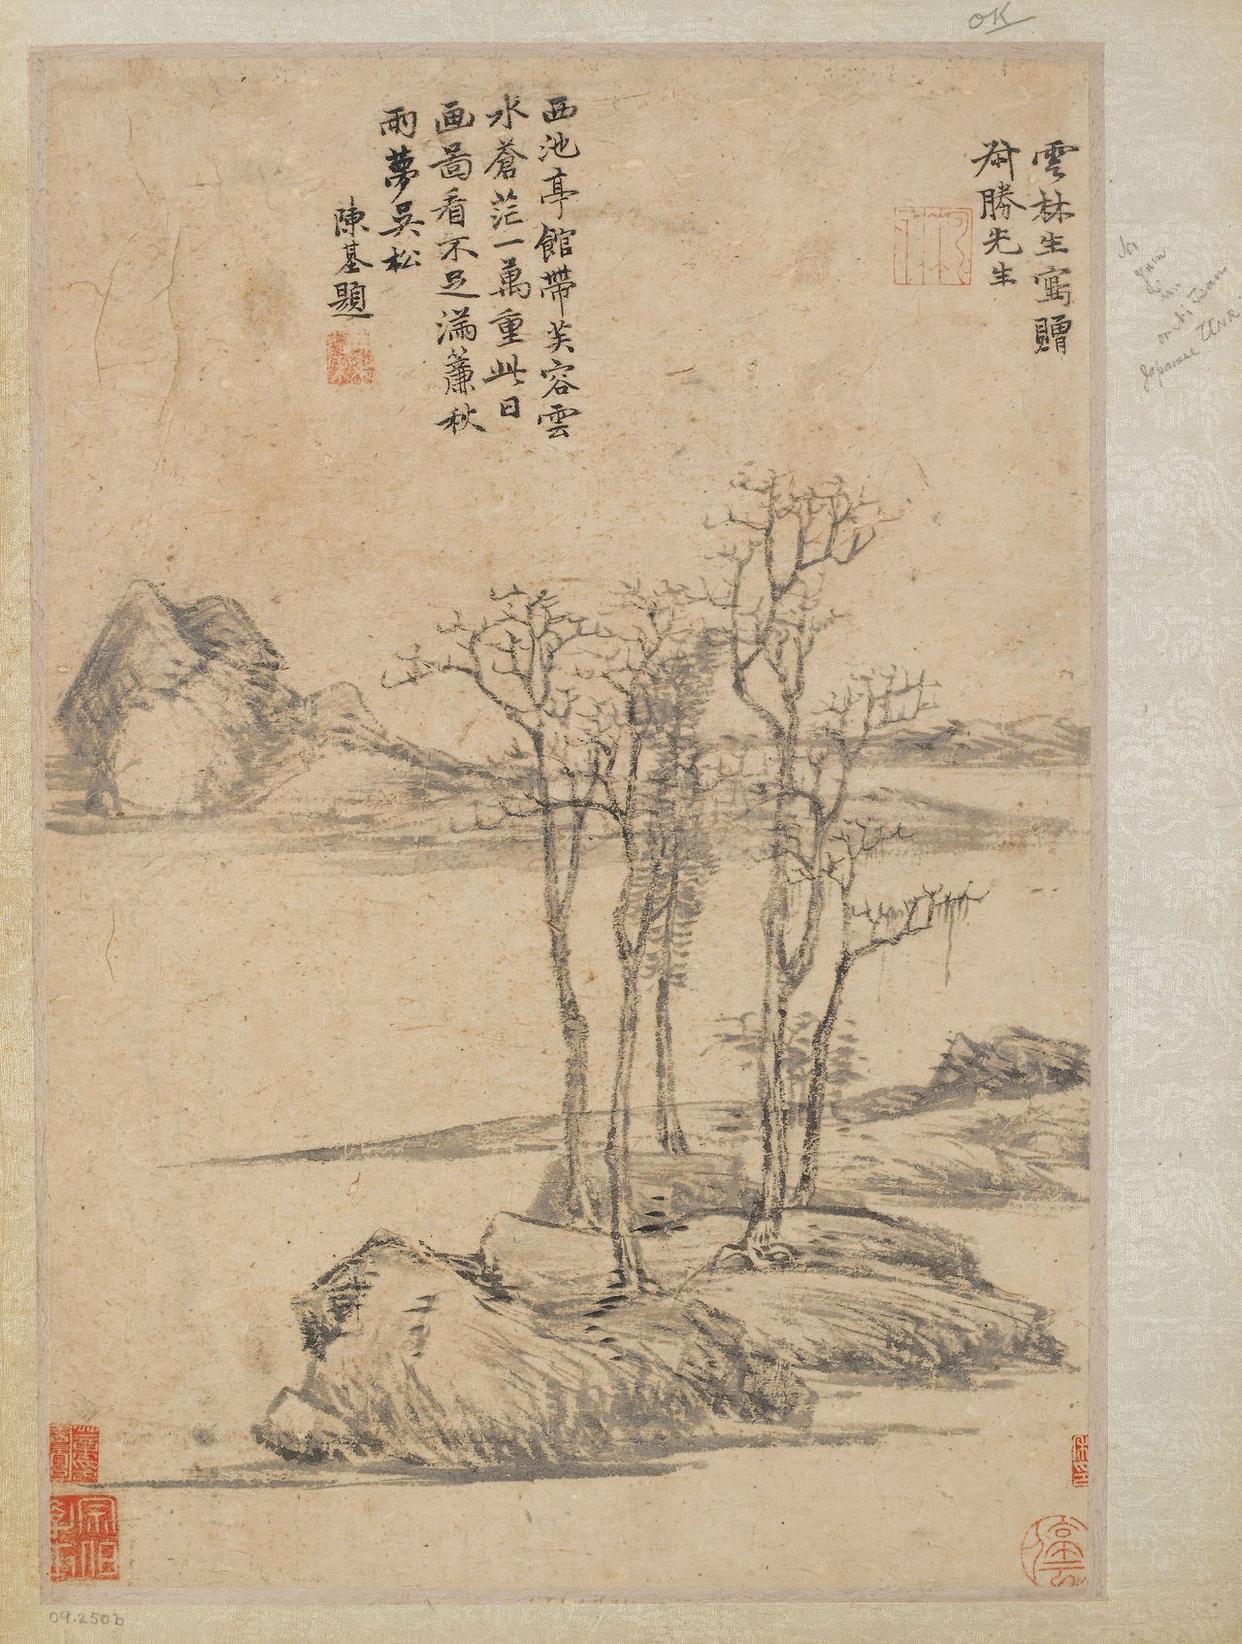 雲林生寫贈
叔勝先生
西池亭館帶芙容雲
水蒼茫一萬重此日
画啚看不足滿簾秋
雨夢吳松
陳基題
OK
Japanese
09.250b